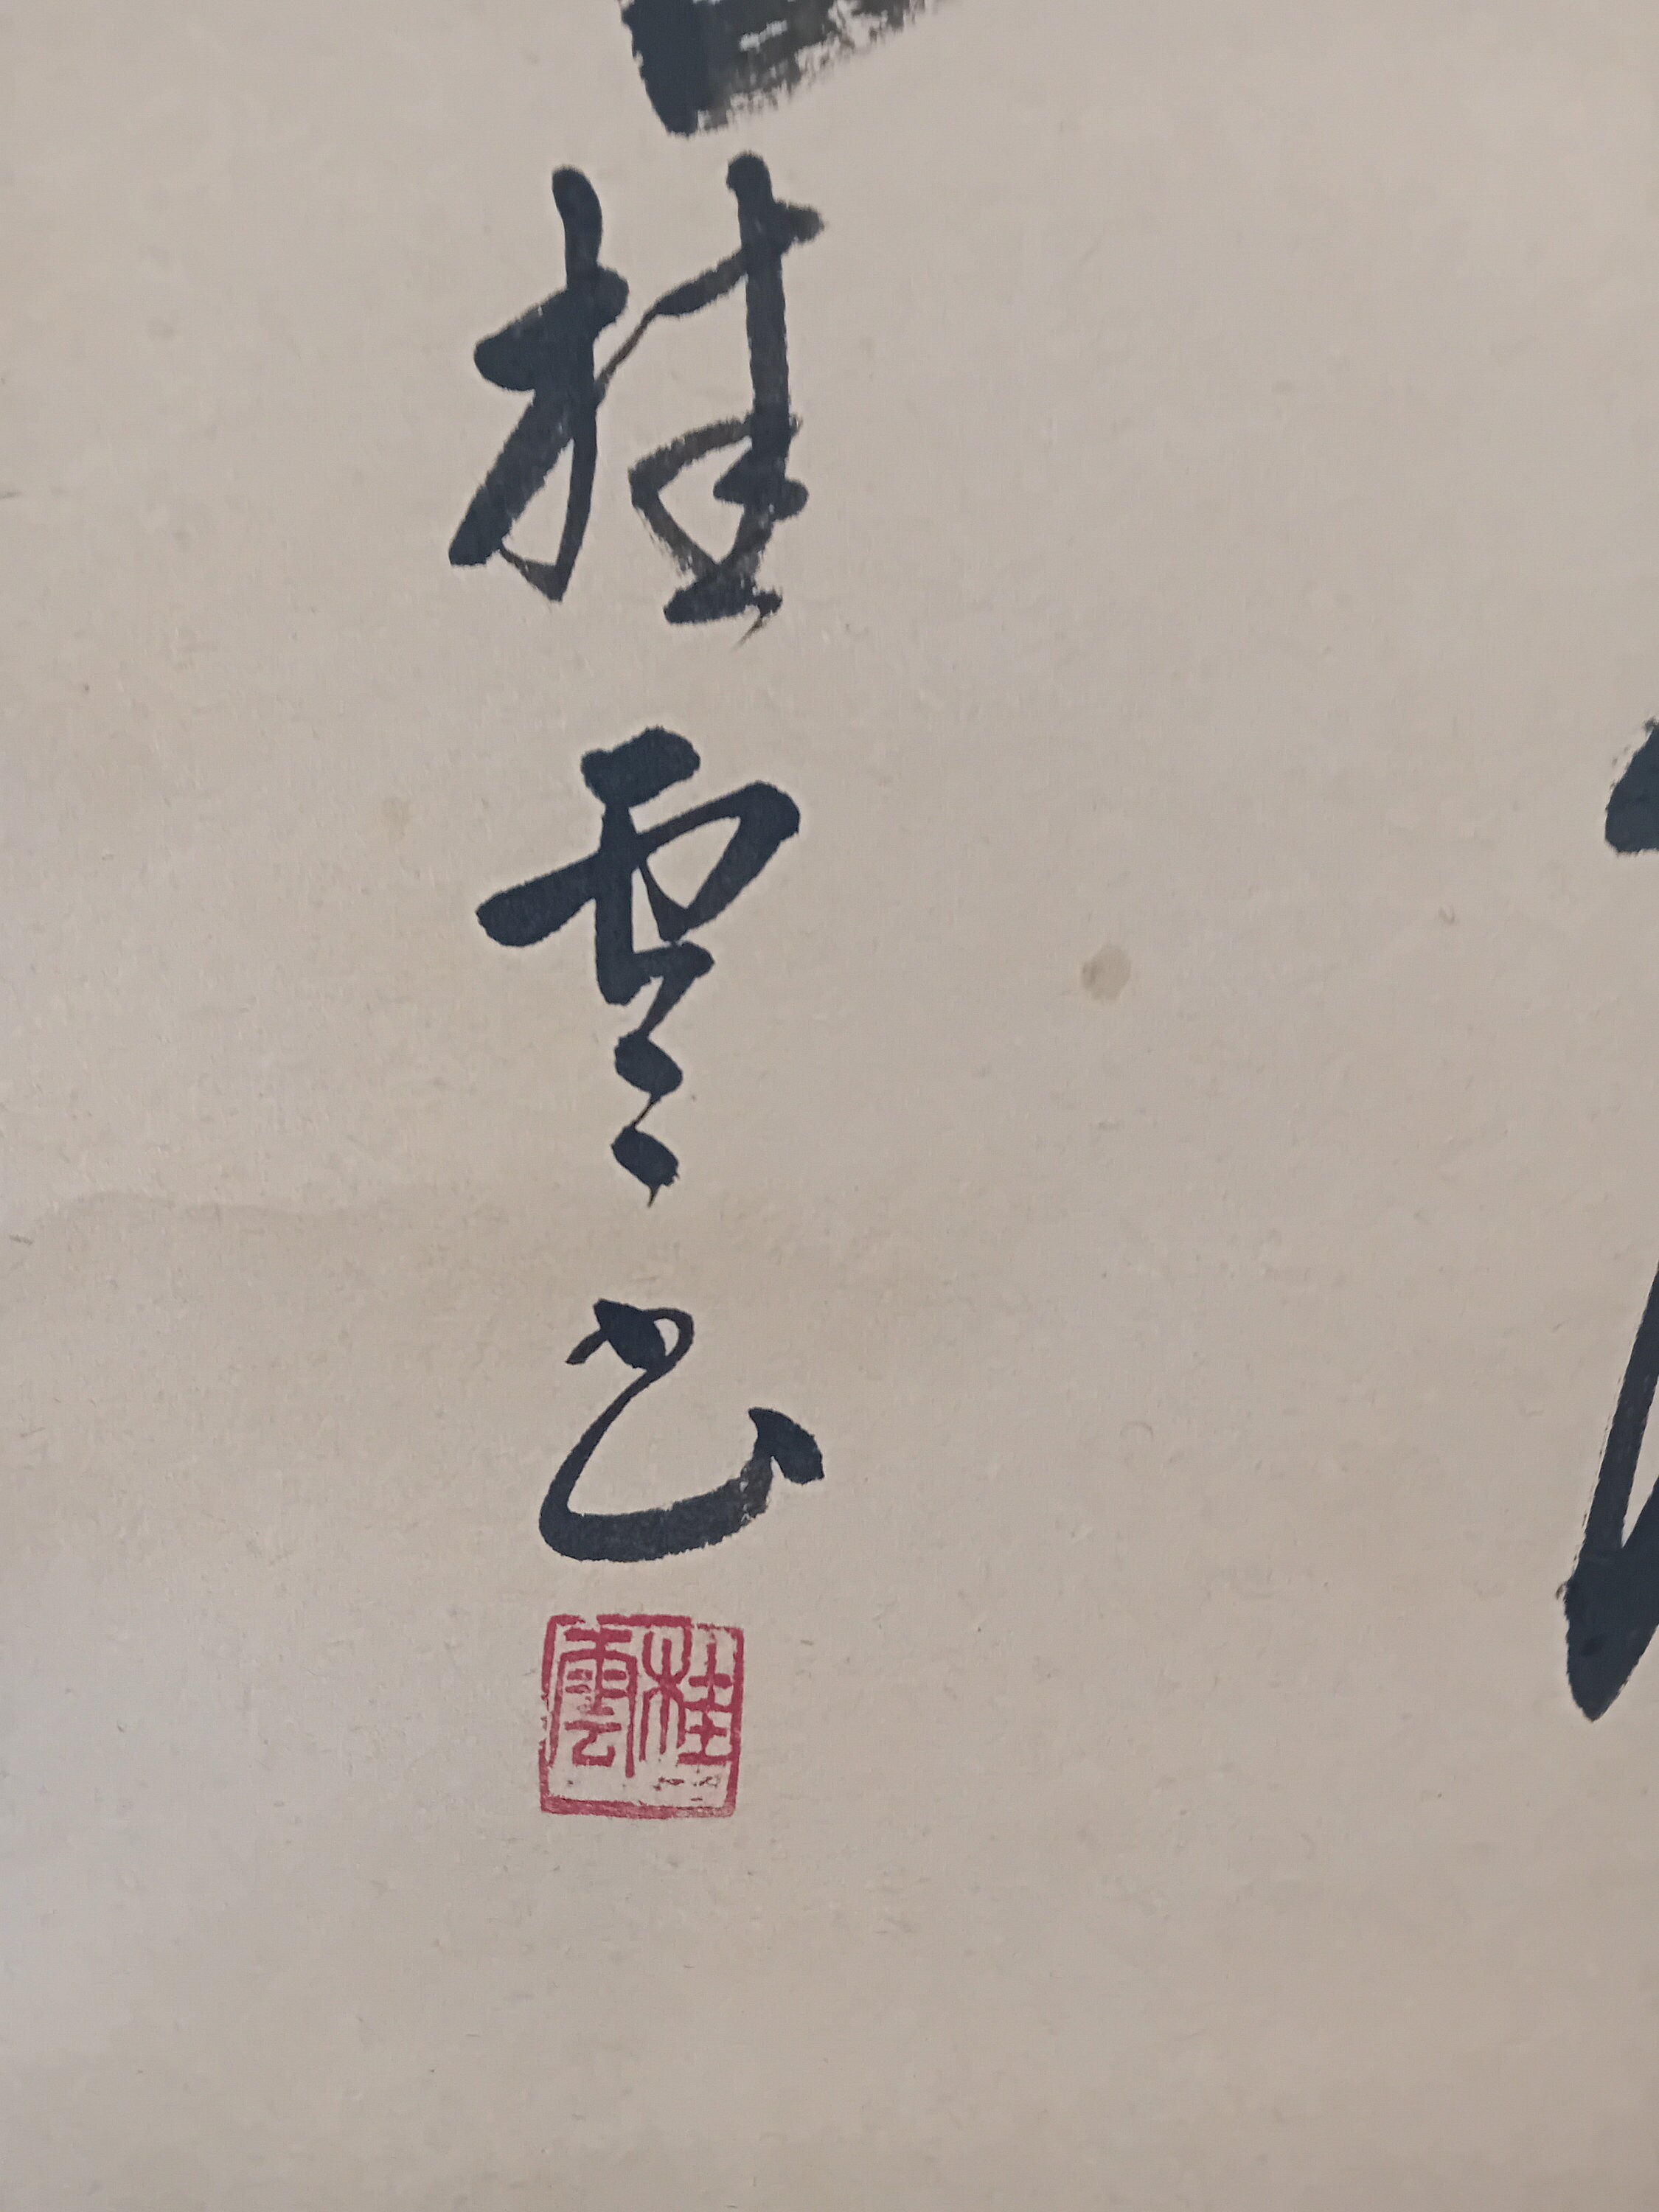 桂雲书
桂雲